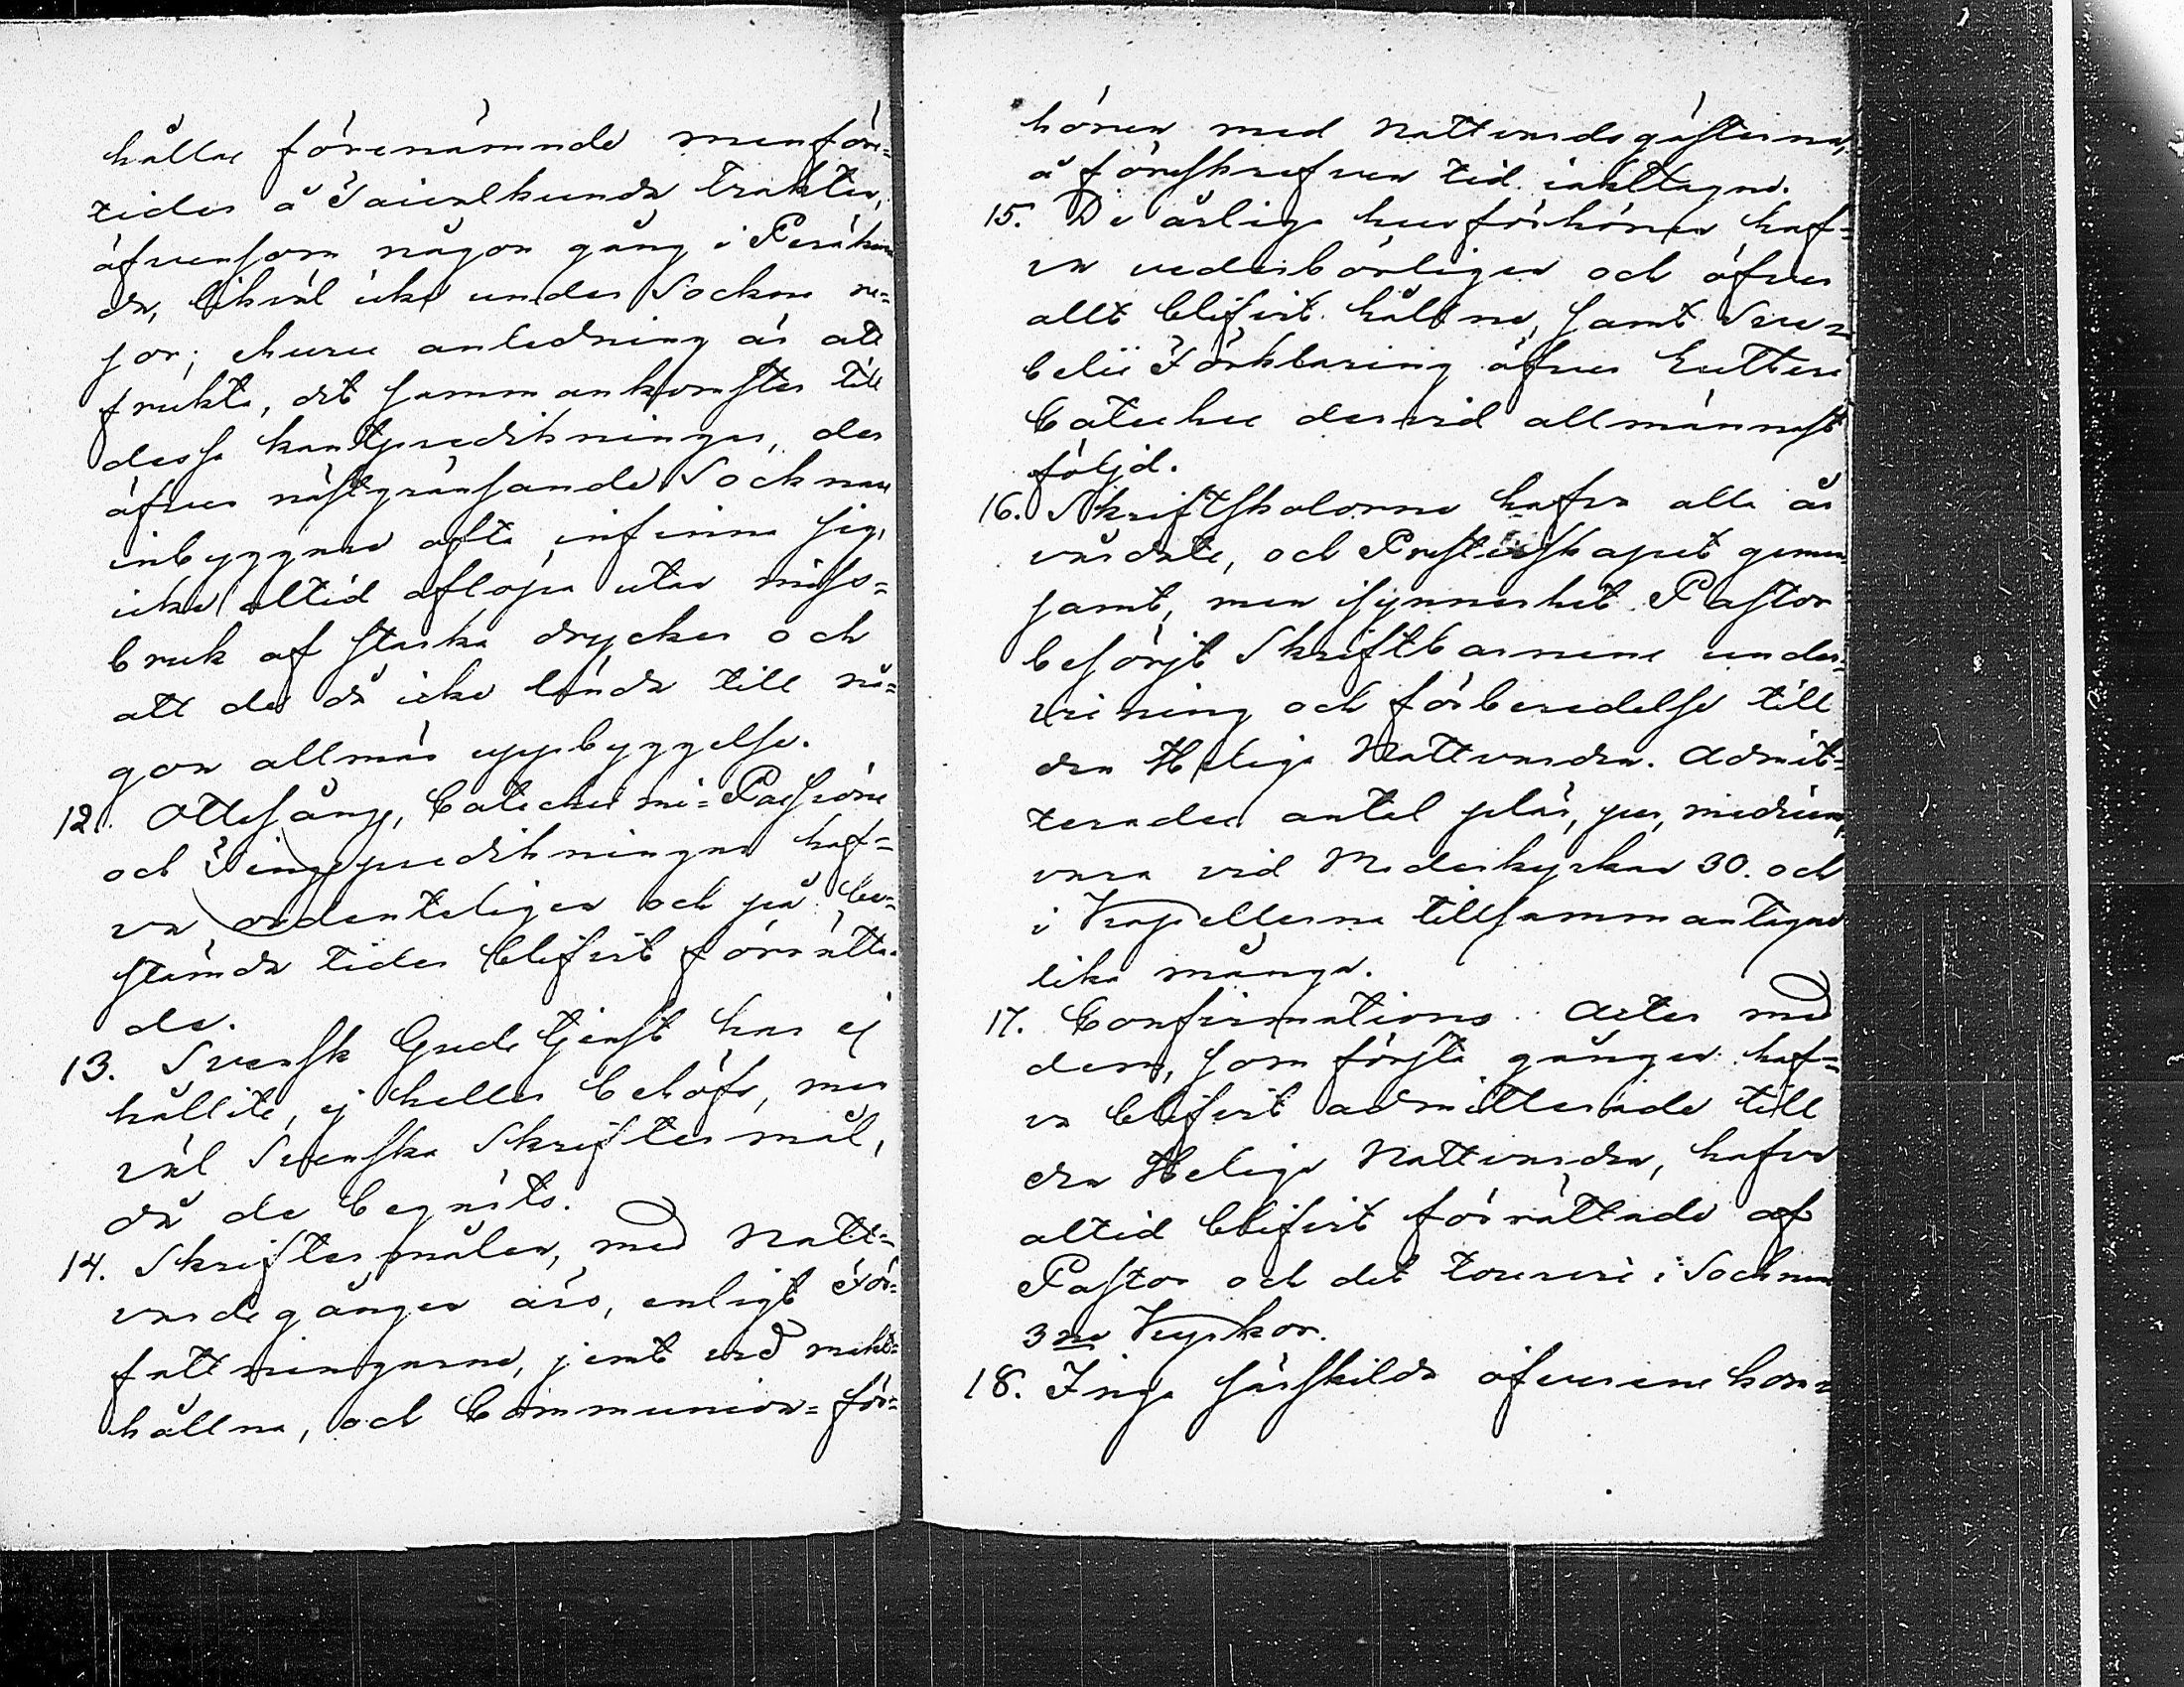 hållas förenämnde menföre-
tider å Taivalkunda trakten,
äfvensom någon gång i Peräkun
da, likväl icke under Sockne re-
sor; ehuru anledning är att
frukta, det sammankomster till
dessa hantpredikningar, der
äfven nästgränsande Socknars
inbyggare ofta infinna sig,
icke altid aflöpa utan miss-
bruk af starka drycker och
att de då icke lända till nå-
gon allmän uppbyggelse.
12. Ottesångs, Catechismi- Passions
och Tings predikningar haf-
va ordenteligen och på be-
stämda tider blifvit förrätta-
de.
13. Svensk Gudstjenst har ej
hållits, ej heller behöfs, men
väl Svenska Skriftermål,
då de begärts.
14. Skriftermålen, med Natt-
vardsgången äro, enligt För-
fattningarne, jemt vid makt-
hållna, och Communion- för-
hören med Nattvardsgästerna,
å föreskrefven tid iakttagne.
15. De årliga husförhören haf-
va vederbörligen och öfver
allt blifvit hållne, samt Sve-
belii Förklaring öfver Lutheri
Cateches dervid allmännast
följd.
16. Skriftskolorne hafva alla år
vårdats, och Presterskapet gemen
samt, men isynnerhet Pastor
besörjt Skriftbarnens under-
visning och förberedelse till
den Heliga Nattvarden. Admit-
terades antal plär, per medium,
vara vid Moderkyrkan 30. och
i Kapellerna tillsammantagne
lika många.
17. Confirmations Acter med
dem, som första gången haf-
va blifvit admitterade till
den Heliga Nattvarden, hafva
altid blifvit förrättade af
Pastor och det tourvis i Socknens
3ne Kyrkor.
18. Inga särskilda öfverenskom-